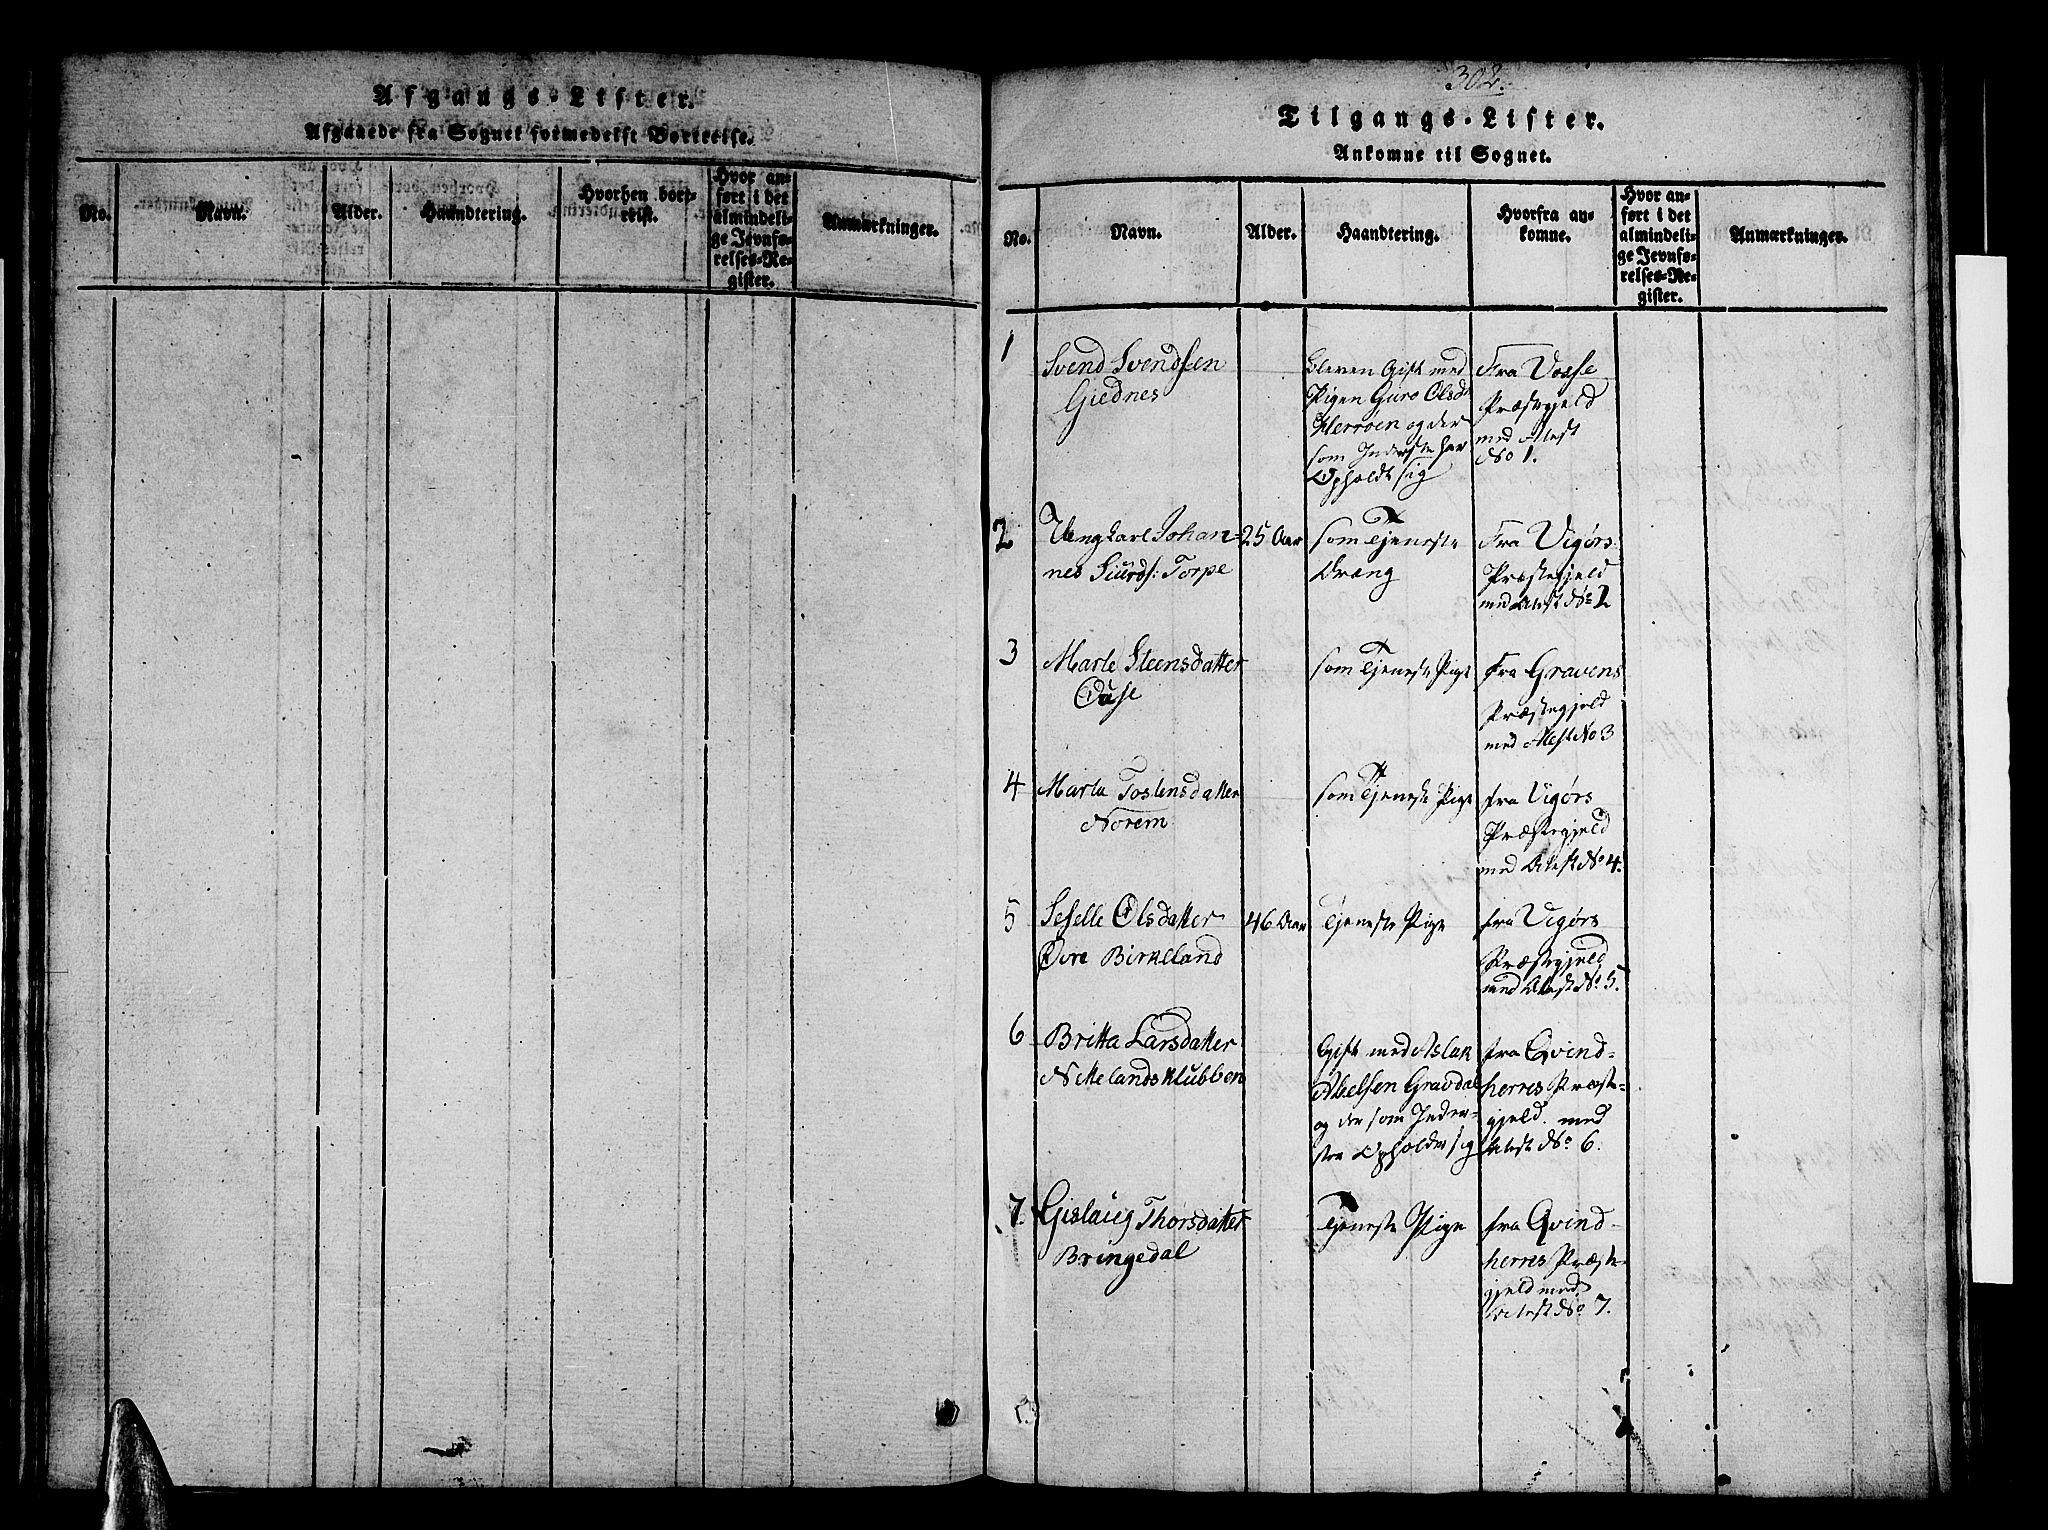 Afgangs-Lister.
Afgaaede fra Sognet formedelst Bortreise.
No.
Navn.
Alder.
Haandtering.
Hvorhen bort-
reist.
Hvor an-
ført i det
almindeli-
ge Jevnfø-
relses-Re-
gister.
Anmærkninger.
302.
Tilgangs-Lister.
Ankomne til Sognet.
No.
Navn.
Alder.
Haandtering.
Hvorfra an-
komne.
Hvor an-
ført i det
almindeli-
ge Jevnfø-
relses-Re-
gister.
Anmærkninger.
1
Svend Svendsen
Giednes
bleven Gift med
Pigen Guro Olsd
Herroen og der
som Inderste har
Opholdt sig
Fra Vosse
Præstegjeld
med Attest
No 1.
2
Ungkarl Johan-
nes Siurds: Torpe
25 Aar
som Tjeneste
Dræng
Fra Vigørs
Præstegjeld
med Attest No 2
3
Marte Steensdatter
Ouse
som Tjeneste Pige
Fra Gravens
Præstegjeld
med Attest No 3
4
Marta Tostensdatter
Norem
som Tjeneste Pige
fra Vigørs
Præstegjeld
med Attest No 4.
5
Seselle Olsdatter
Øvre Birkeland
46 Aar
Tjeneste Pige
fra Vigørs
Præstegjeld
med Attest No 5.
6
Britta Larsdatter
Nittelandsklubben
Gift med Aslak
Abelsen Gravdal
og der som Inder-
ste Opholder sig
fra Qvind-
herres Præste-
gjeld med
Attest No 6.
7.
Gislaug Thorsdatter
Bringedal
Tjeneste Pige
fra Qvind-
herres Præste-
gjeld med
Attest No 7.